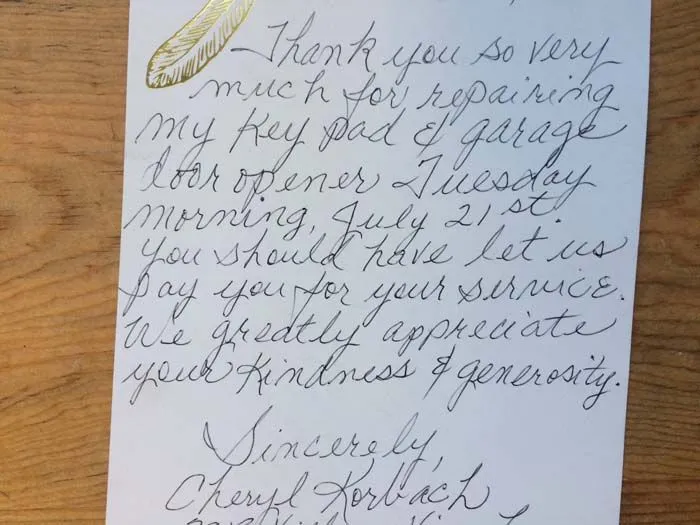 Thank you so very
much for repairing
my Key pad & garage
door opener Tuesday
morning, July 21st.
You should have let us
pay you for your service.
We greatly appreciate
your Kindness & generosity.
Sincerely,
Cheryl Korbach